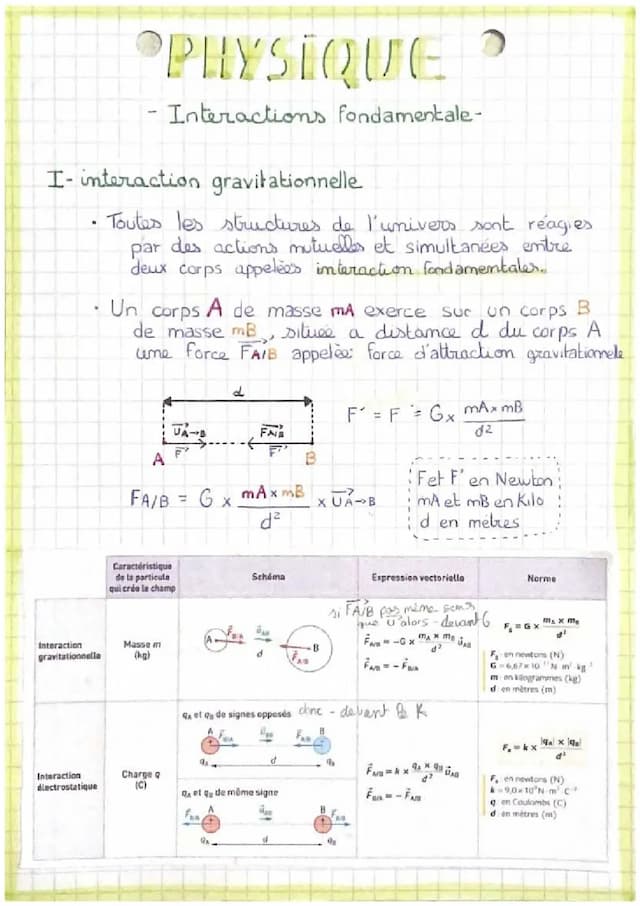 PHYSIQUE
- Interactions fondamentale-
I- interaction gravitationnelle
• Toutes les structures de l'univers sont réagies
par des actions mutuelles et simultanées entre
deux corps appelées interaction fondamentales.
• Un corps A de masse mA exerce sur un corps B
de masse mB, située a distance d du corps A
une force FA/B appelée: force d'attraction gravitationnelle
d
UA→B FA/B
A F F' B
F' = F = G x mA x mB / d²
FA/B = G x mA x mB / d² x UA→B
F et F' en Newton
mA et mB en Kilo
d en mètres
Caractéristique de la particule qui crée le champ
Schéma
Expression vectorielle
Norme
Interaction gravitationnelle
Masse m (kg)
A F B/A u AB d F A/B B
si FA/B pas même sens
que U alors - devant G
F A/B = -G × mA × mB / d² u AB
F A/B = - F B/A
F g = G × mA × mB / d²
F g : en newtons (N)
G = 6,67 × 10⁻¹¹ N·m²·kg⁻²
m : en kilogrammes (kg)
d : en mètres (m)
Interaction électrostatique
Charge q (C)
qA et qB de signes opposés donc - devant K
A F B/A u AB F A/B B
qA d qB
qA et qB de même signe
F B/A A u AB B F A/B
qA d qB
F A/B = k × qA × qB / d² u AB
F B/A = - F A/B
F e = k × |qA| × |qB| / d²
F e : en newtons (N)
k = 9,0 × 10⁹ N·m²·C⁻²
q : en Coulombs (C)
d : en mètres (m)